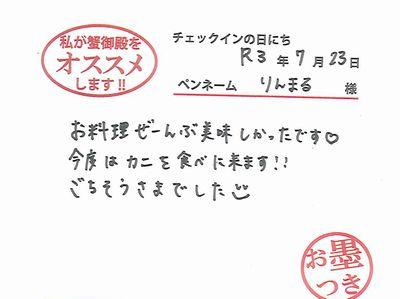 私が蟹御殿を
オススメ
します!!
チェックインの日にち
R3年7月23日
ペンネーム りんまる 様
お料理ぜーんぶ美味しかったです♡
今度はカニを食べに来ます!!
ごちそうさまでした
お墨
つき